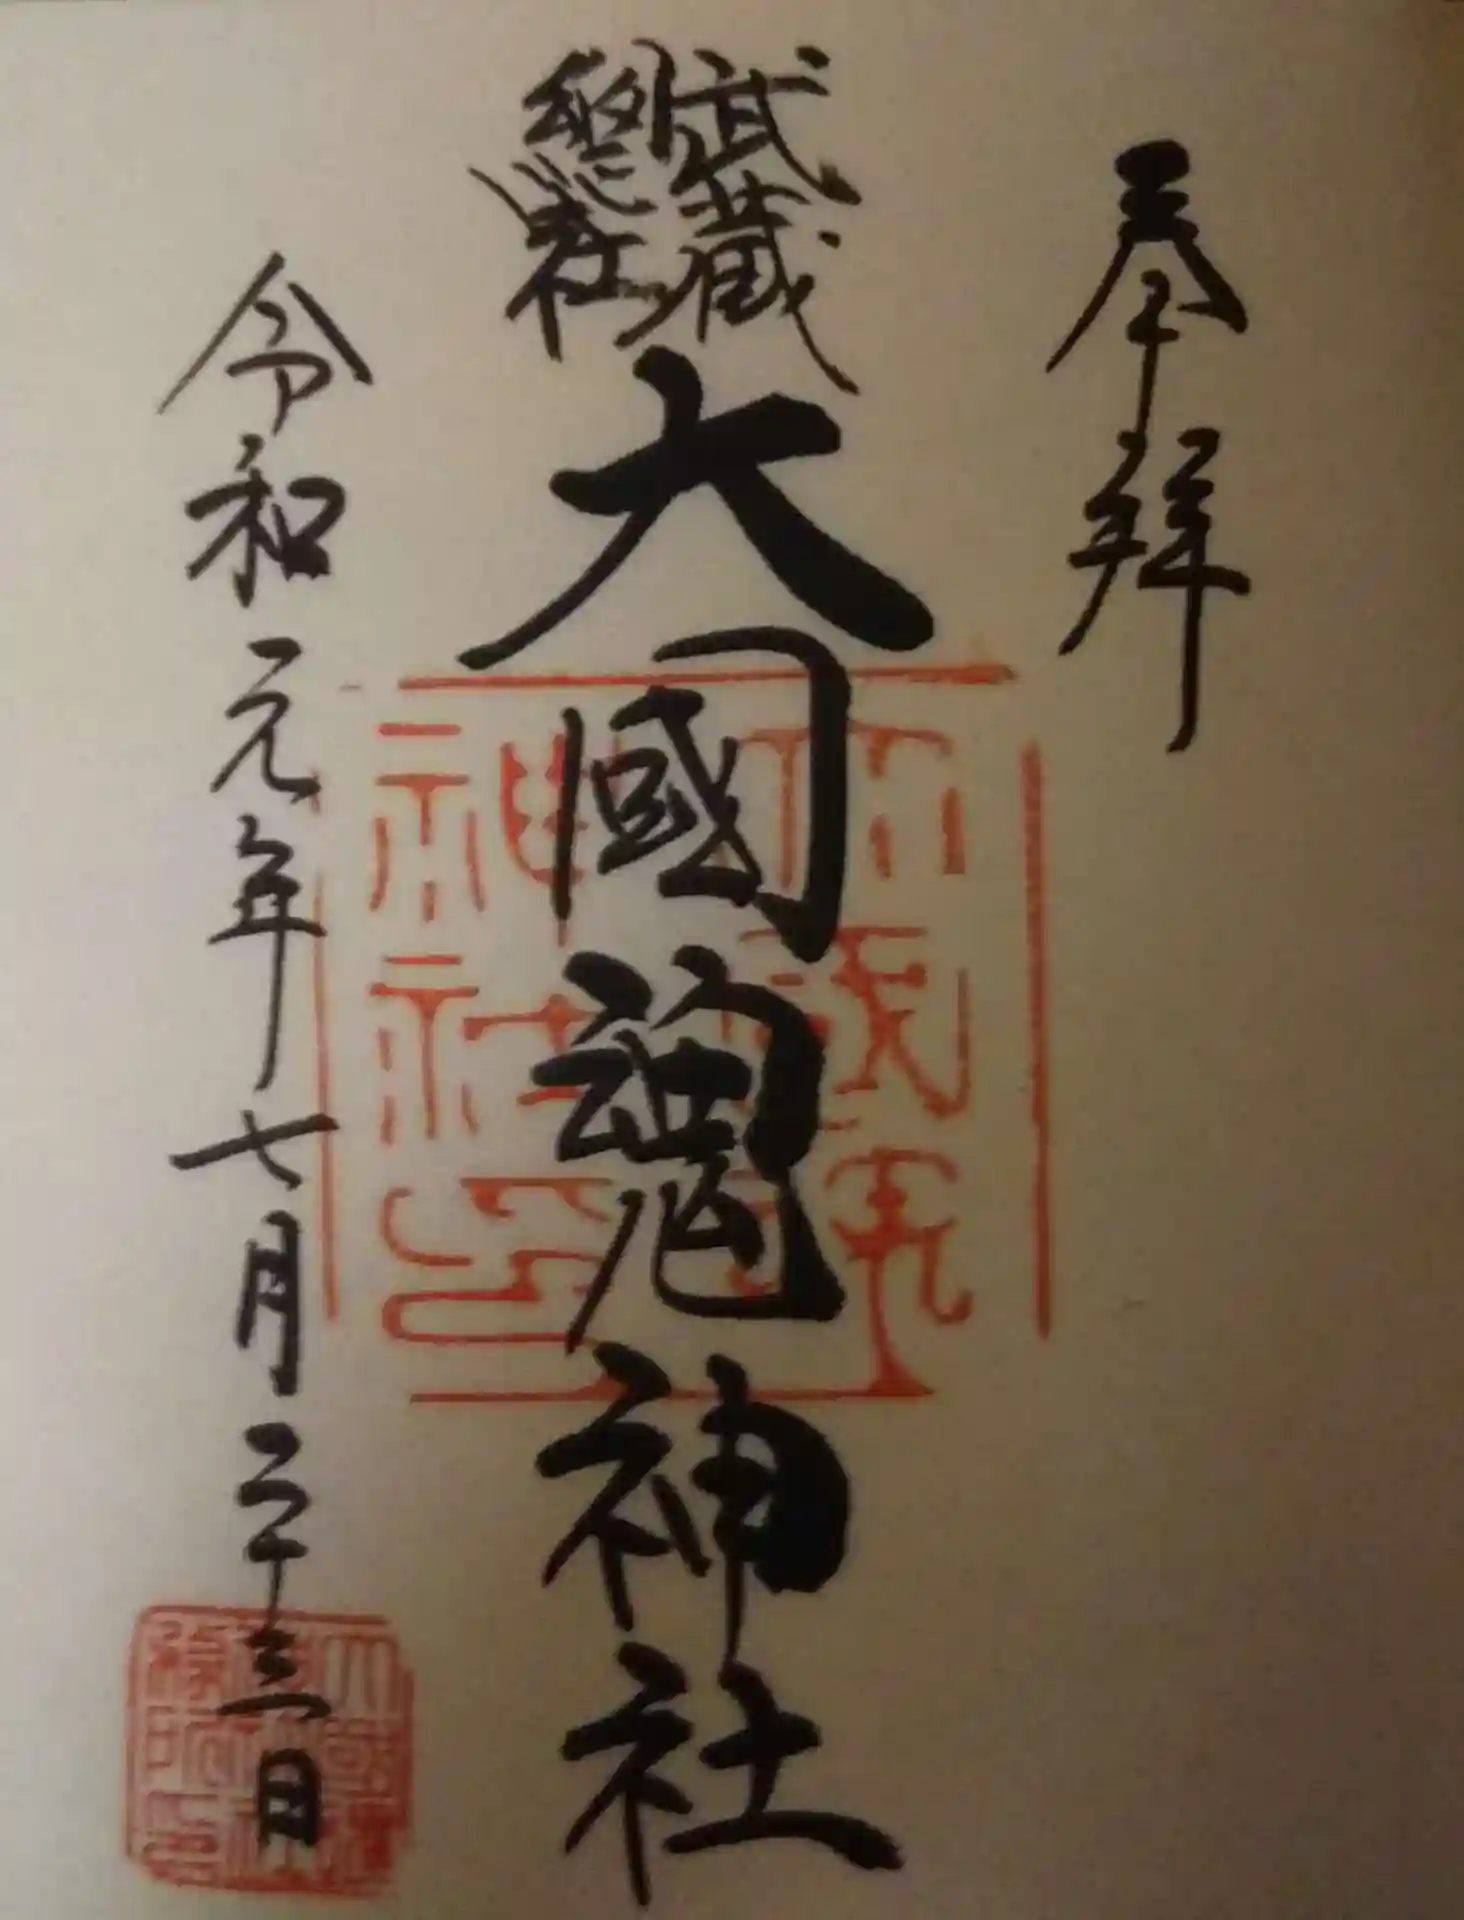 奉拝
武蔵
總社
大國魂神社
令和元年七月二十三日
大國魂
神社印